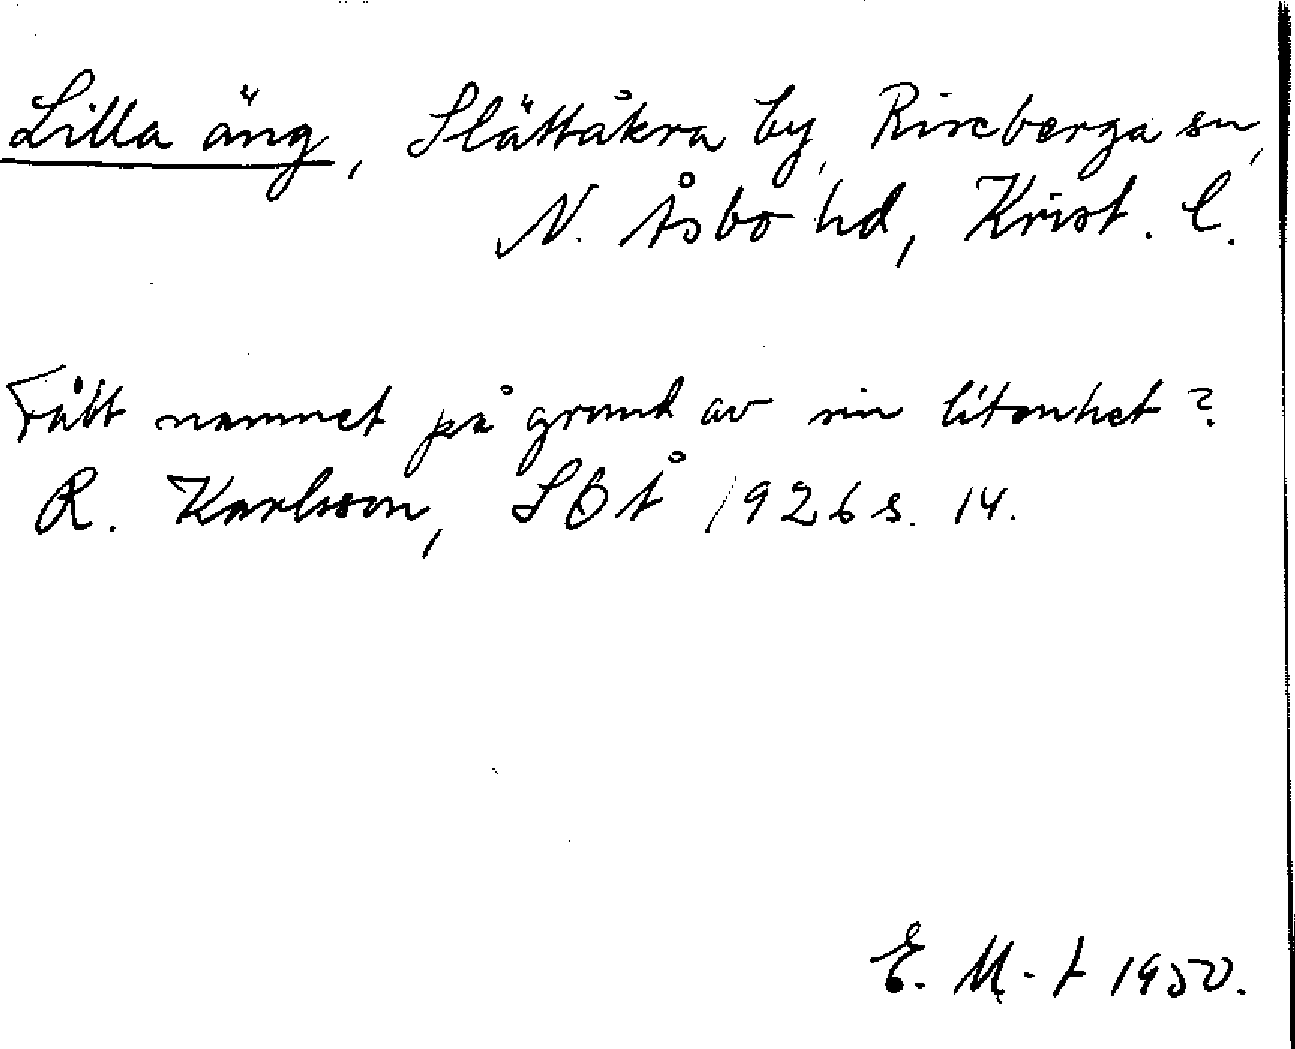 Lilla äng, Slättåkra by, Riseberga sn,
N. Åsbo hd, Krist. l.
Fått namnet på grund av sin litenhet?
R. Karlsson, SOÅ 1926 s. 14.
E. M-t 1950.